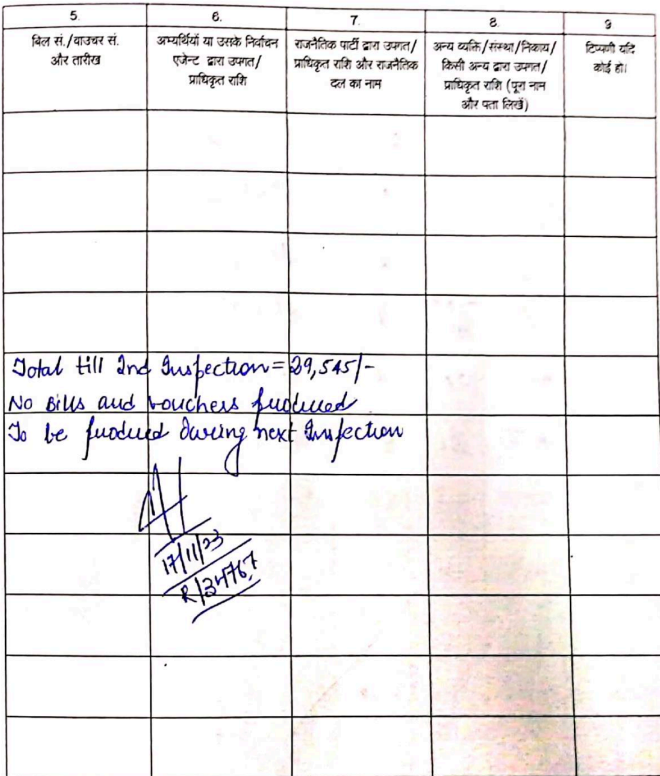 5. 6. 7. 8. 9
बिल सं./वाउचर सं. और तारीख
अभ्यर्थियों या उसके निर्वाचन एजेन्ट द्वारा उपगत/ प्राधिकृत राशि
राजनैतिक पार्टी द्वारा उपगत/ प्राधिकृत राशि और राजनैतिक दल का नाम
अन्य व्यक्ति/संस्था/निकाय/ किसी अन्य द्वारा उपगत/ प्राधिकृत राशि (पूरा नाम और पता लिखें)
टिप्पणी यदि कोई हो।
Total till 2nd Inspection = 29,545/-
No Bills and vouchers produced
To be produced during next Inspection
17/11/23